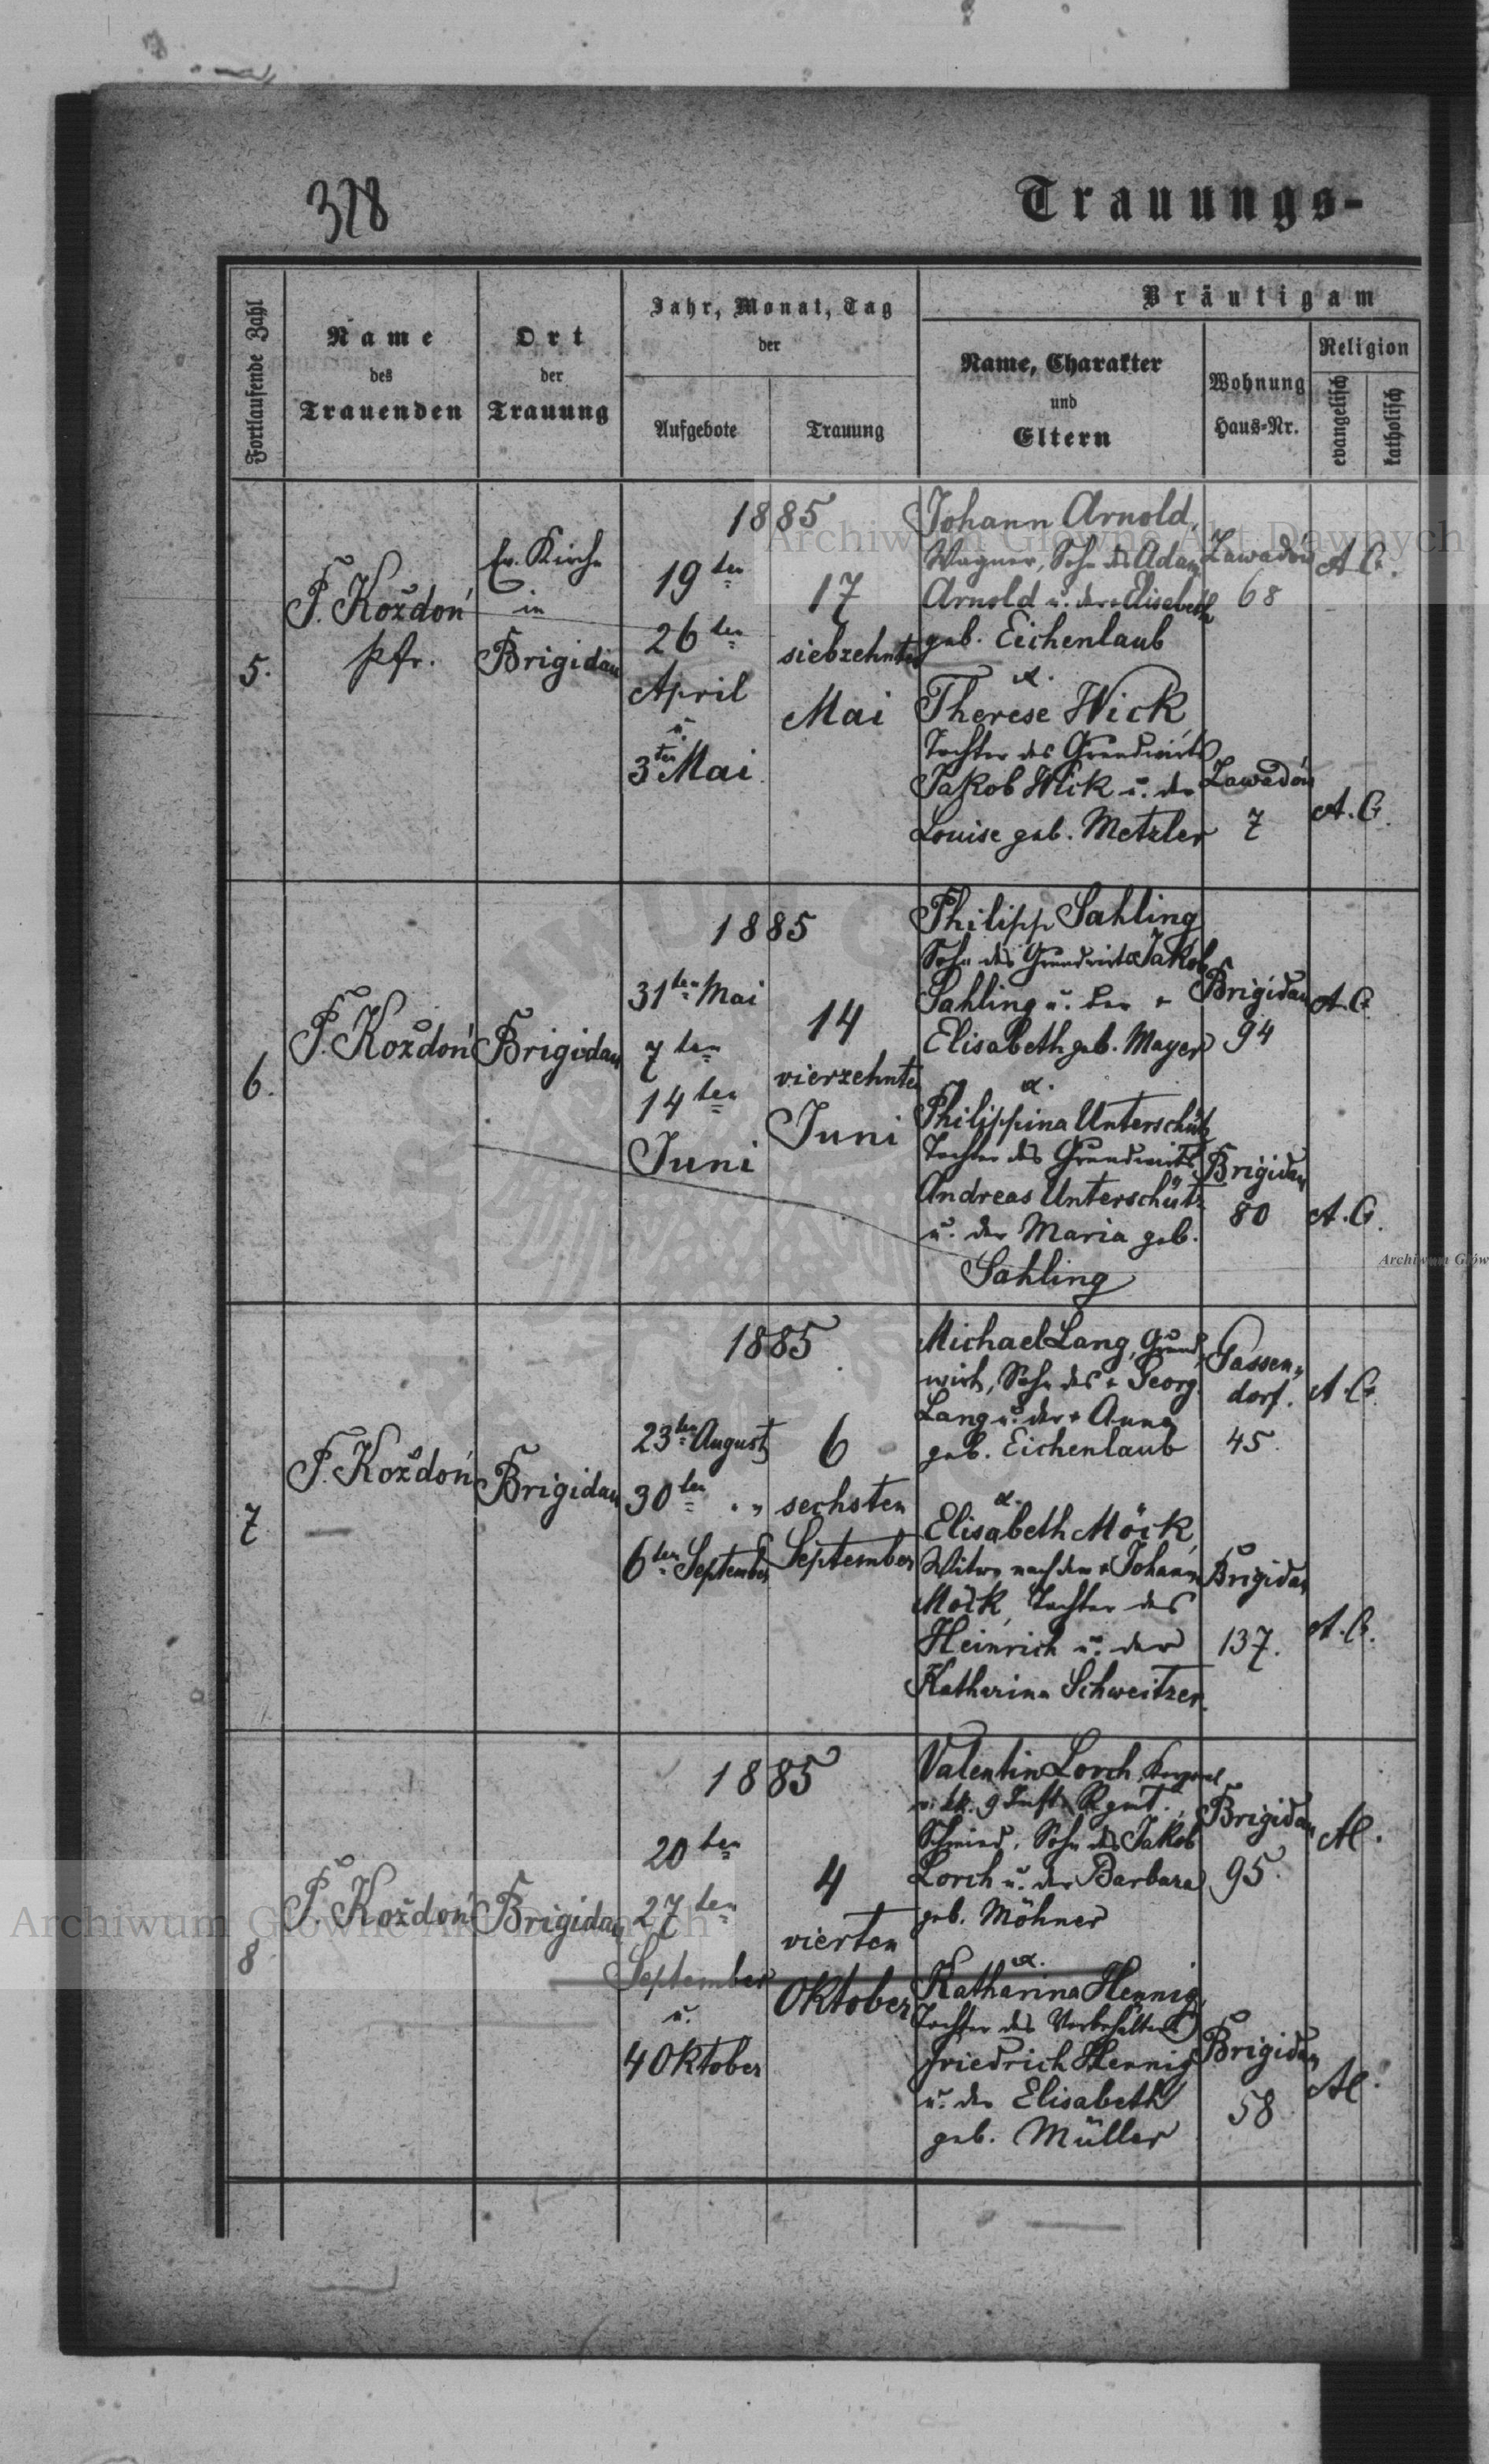 328
Trauungs-
Fortlaufende Zahl
Name
des
Trauenden
Ort
der
Trauung
Jahr, Monat, Tag
der
Aufgebote
Trauung
Bräutigam
Name, Charakter
und
Eltern
Wohnung
Haus-Nr.
Religion
evangelisch
katholisch
5.
P. Koždoń
pfr.
Ev. Kirche
in
Brigidau
1885
19ten
26ten
April
u.
3ten Mai
17
siebzehnten
Mai
Johann Arnold,
Wagner, Sohn des Adam
Arnold u. der Elisabeth
geb. Eichenlaub
&.
Therese Wick
Tochter des Grundwirts
Jakob Wick u. der
Louise geb. Metzler
Zawadów
68
Zawadów
7
A. C.
A. C.
6.
P. Koždoń
Brigidau
1885
31ten Mai
7ten
14ten
Juni
14
vierzehnten
Juni
Philipp Sahling
Sohn des Grundwirts Jakob
Sahling u. der +
Elisabeth geb. Mayer
&.
Philippina Unterschütz
Tochter des Grundwirts
Andreas Unterschütz
u. der Maria geb.
Sahling
Brigidau
94
Brigidau
80
A. C.
A. C.
7
P. Koždoń
Brigidau
1885
23ten August
30ten „
6ten September
6
sechsten
September
Michael Lang, Grund-
wirt, Sohn des + Georg
Lang u. der + Anna
geb. Eichenlaub
&.
Elisabeth Möck,
Witwe nach dem + Johann
Möck, Tochter des
Heinrich u. der
Katharina Schweitzer.
Gassen-
dorf.
45.
Brigidau
137.
A. C.
A. C.
8
P. Koždoń
Brigidau
1885
20ten
27ten
September
u.
4 Oktober
4
vierten
Oktober
Valentin Lorch,
9 Inft. Rgmt.
Schmied, Sohn des Jakob
Lorch u. der Barbara
geb. Möhner
&.
Katharina Hennig,
Tochter des
Friedrich Hennig
u. der Elisabeth
geb. Müller
Brigidau
95.
Brigidau
58
AC.
AC.
Archiwum Główne Akt Dawnych
Archiwum Główne Akt Dawnych
Archiwum Głów